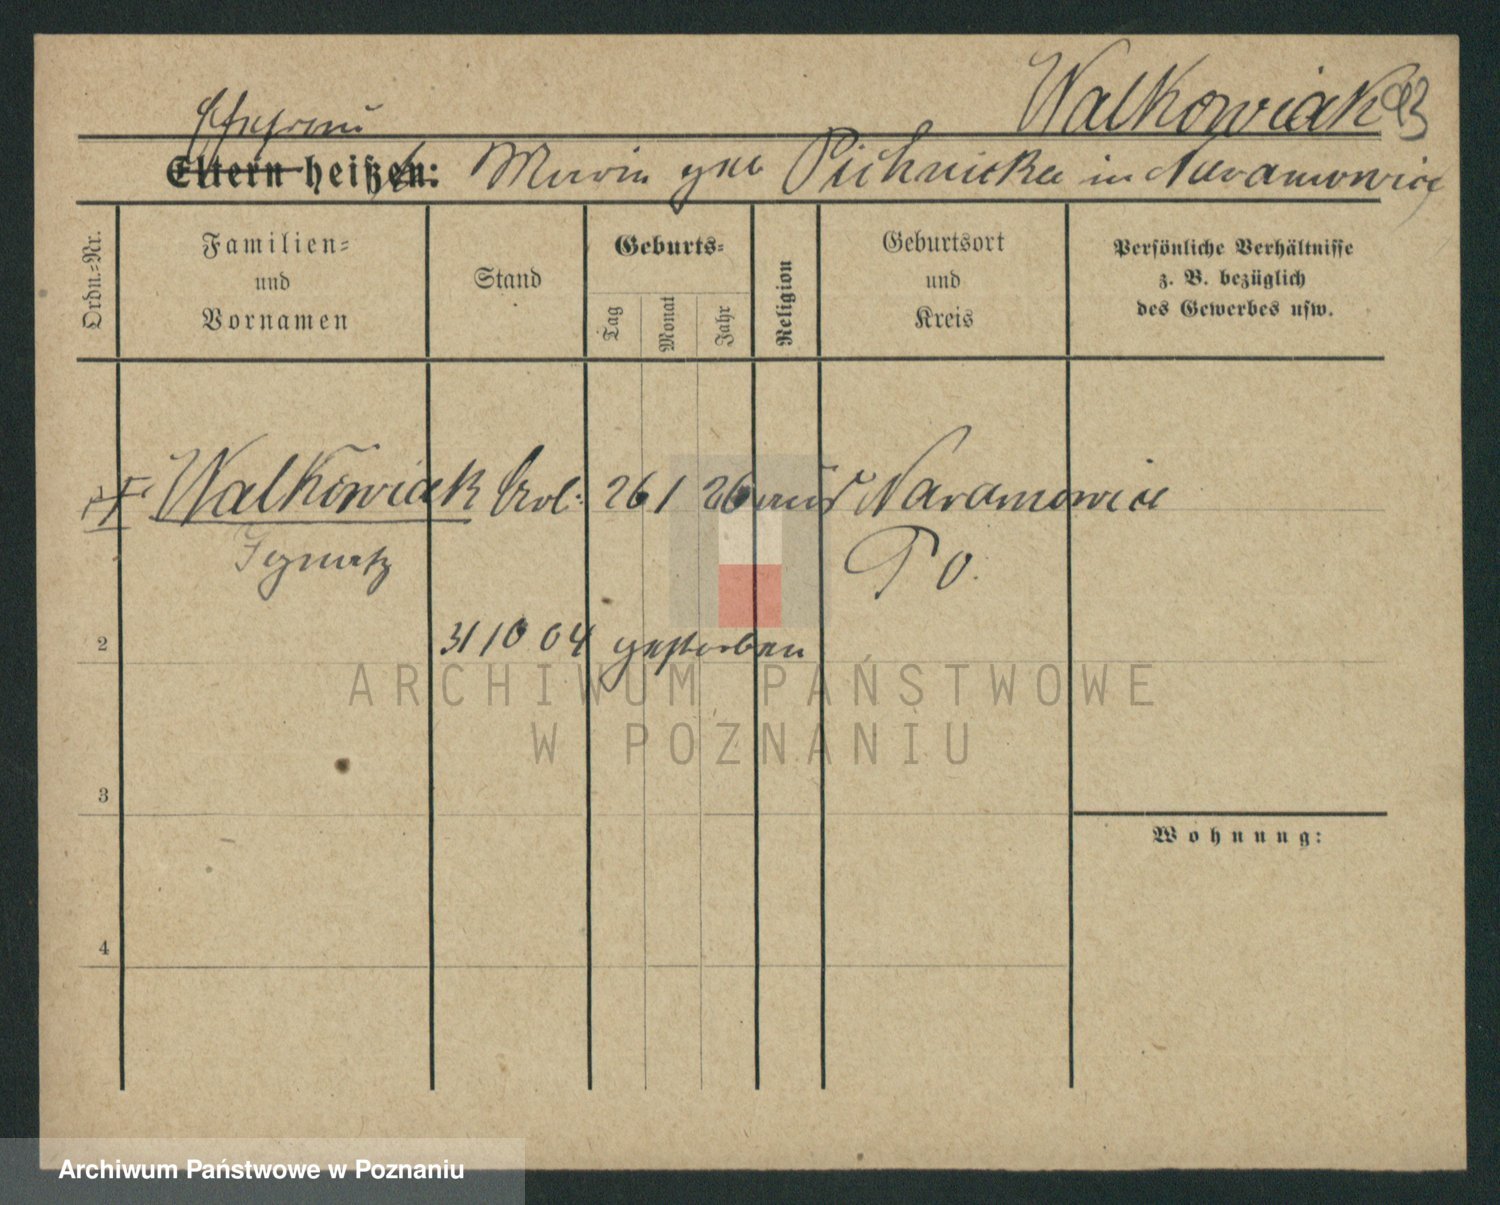 Walkowiak
Ehefrau
Eltern heißen: Maria geb Pichnicka in Naramowice
Ordn.-Nr.
Familien-
und
Vornamen
Stand
Geburts-
Tag
Monat
Jahr
Religion
Geburtsort
und
Kreis
Persönliche Verhältnisse
z. B. bezüglich
des Gewerbes usw.
Walkowiak 26 1 26 Naramowice
Ignatz P O.
2 31 10 04 gestorben
3
4
Wohnung:
ARCHIWUM PAŃSTWOWE
W POZNANIU
Archiwum Państwowe w Poznaniu